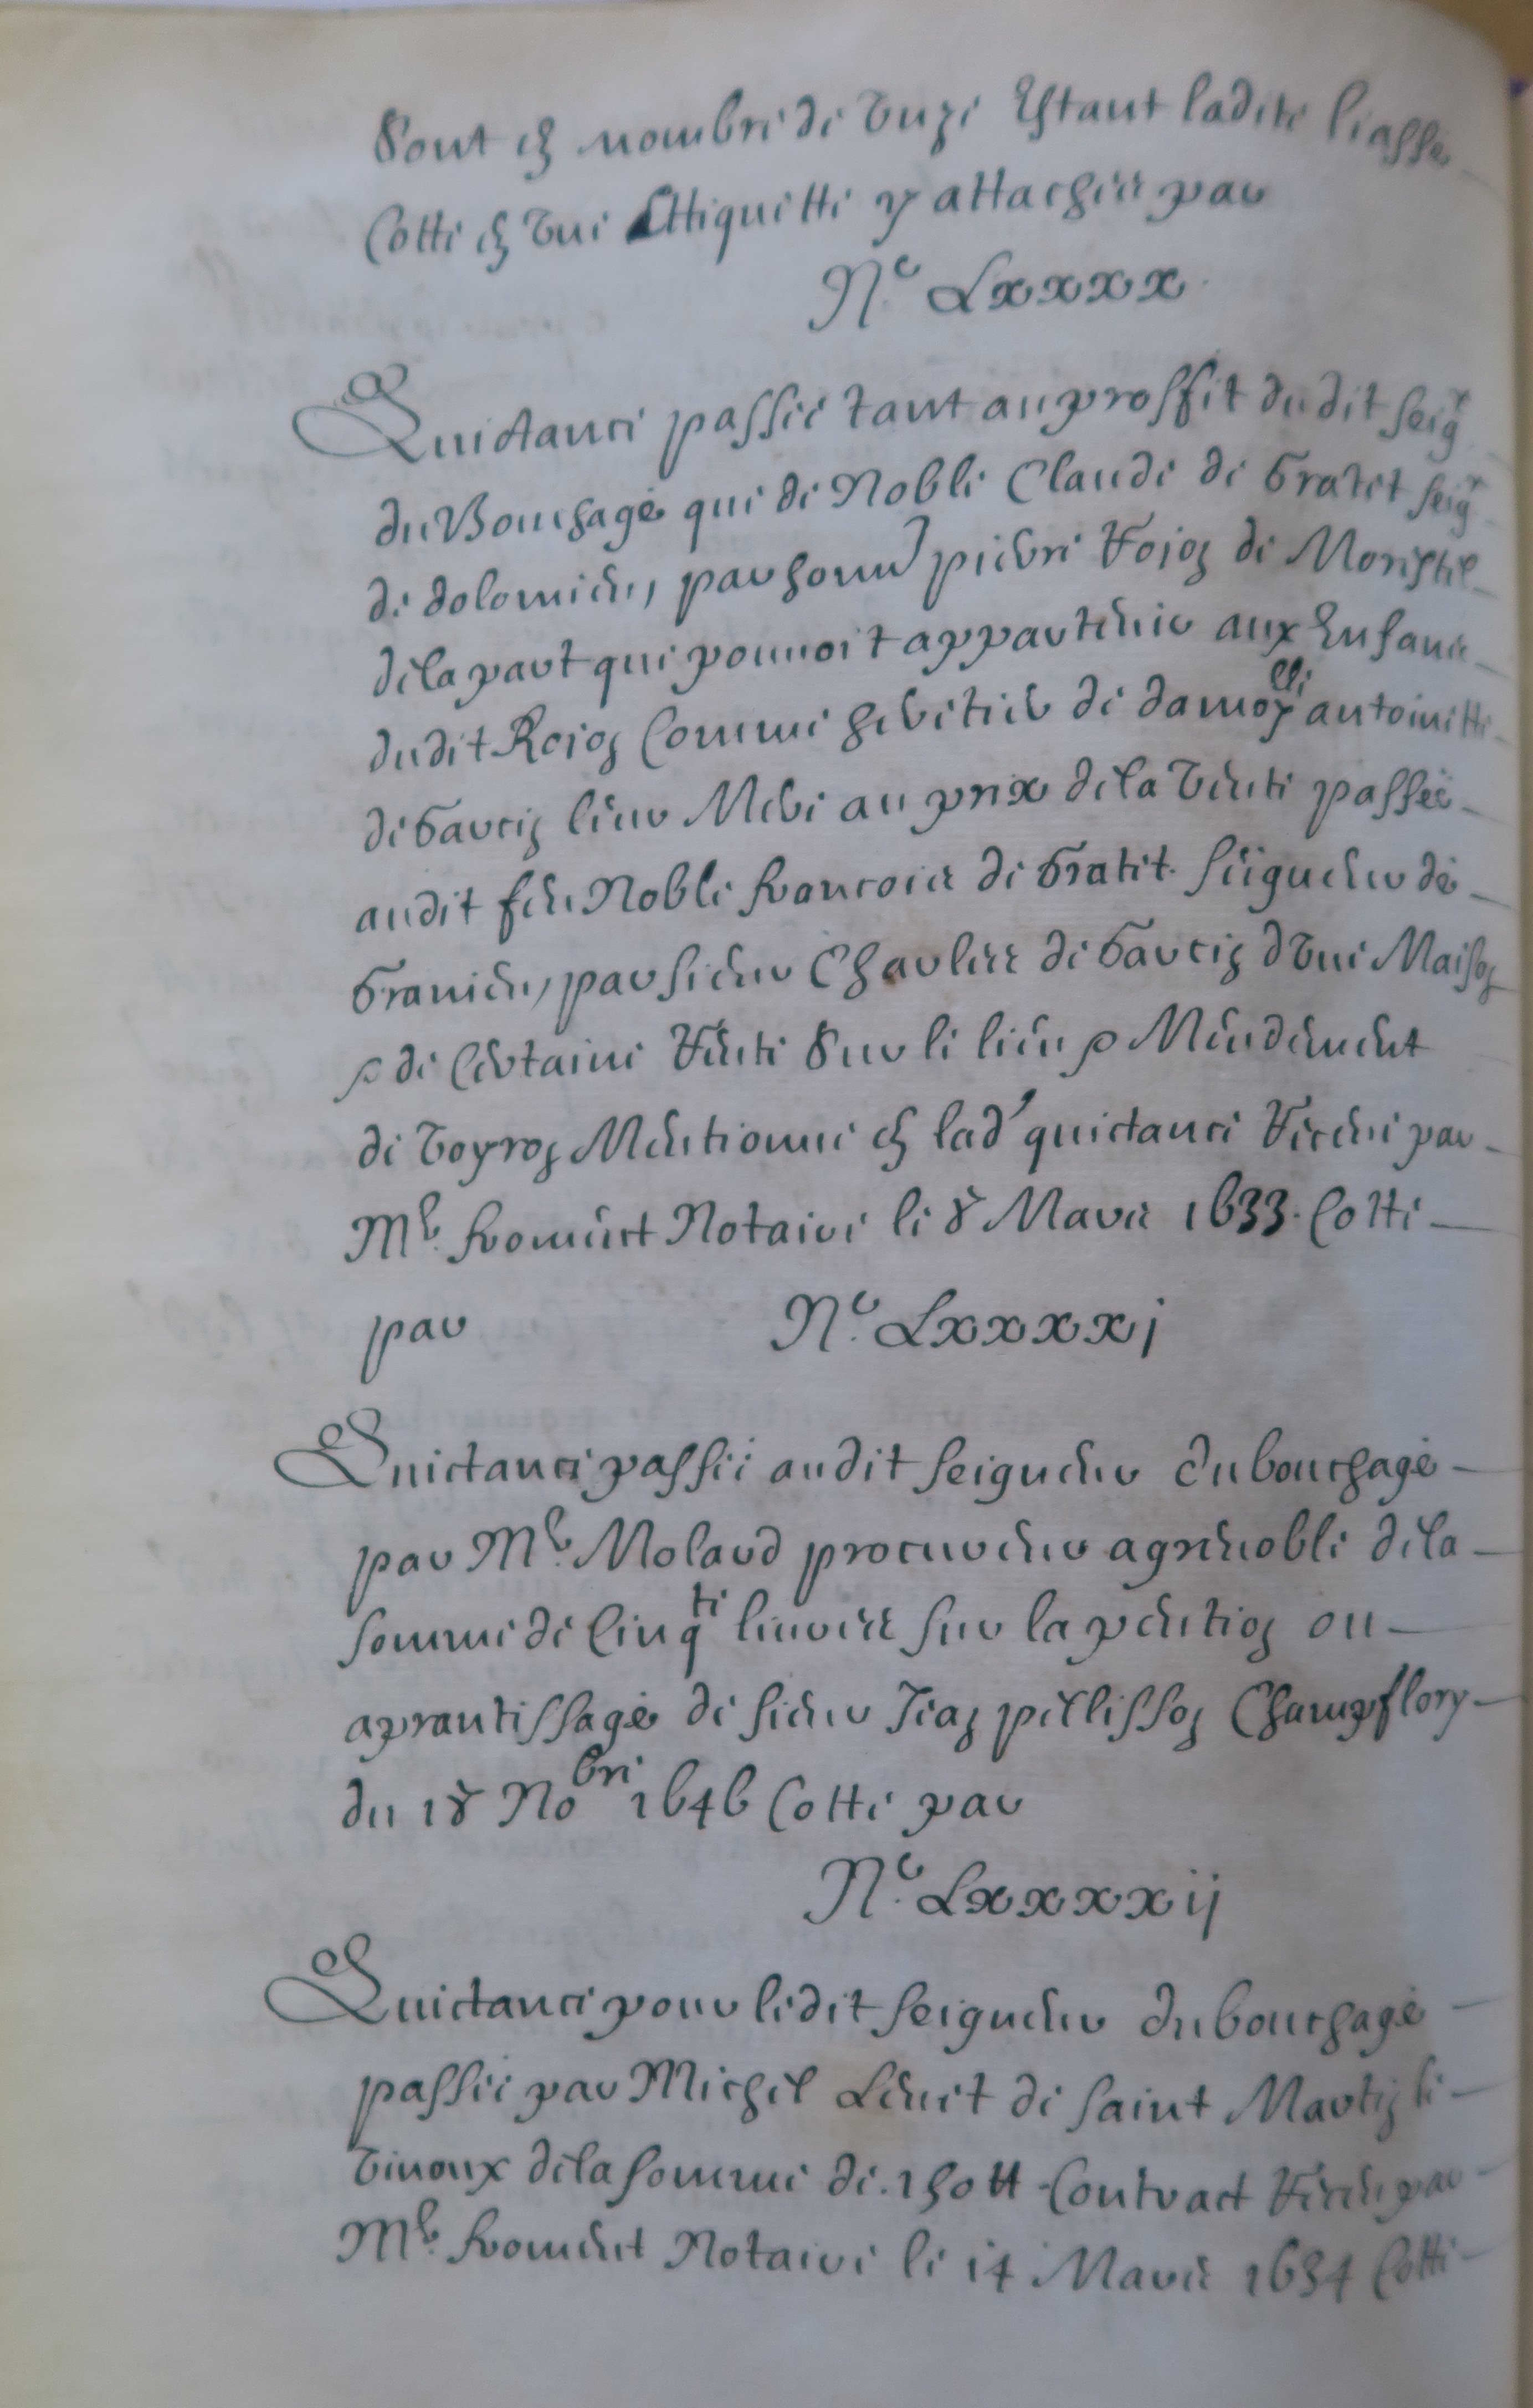 Sont en nombre de unze Estant ladite liasse
Cottee en une Ettiquette y attachee par
N.º Lxxxx
Quictance passée tant au proffit dudit seigr
du Bouchage que de Noble Claude de Gratet seigr
de dolomieu, par honne pierre Rojon de Morestel
de la part que pouuoit appartenir aux Enfans
dudit Rojon Comme heritier de damoylle antoinette
de Garcin leur Mere au prix de la Vente passée
audit feu Noble francois de Gratet Seigneur de
Granieu, par sieur Charles de Garcin d'une Maison
& de Certaine Rente Sur le lieu & Mendement
de Veyron Mentionne en lad' quictance Receue par
Me. froment Notaire le 8 Mars 1633. Cotte
par N.º Lxxxxj
Quictance passée audit seigneur du bouchage
par Me. Molard procureur a grenoble de la
somme de Cinqte liures sur la pention ou
aprantissage de sieur Jean pellisson Champflory
du 18 Nobre 1646 Cotte par
N.º Lxxxxij
Quictance pour ledit seigneur du bouchage
passée par Michel Leuet de saint Martin le
Vinoux de la somme de 150 tt Contract Receu par
Me. froment Notaire le 14 Mars 1634 Cotte